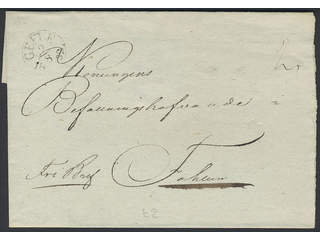 GEFLE
Konungens
Befallningshafvande
Fri Bref Fahlun